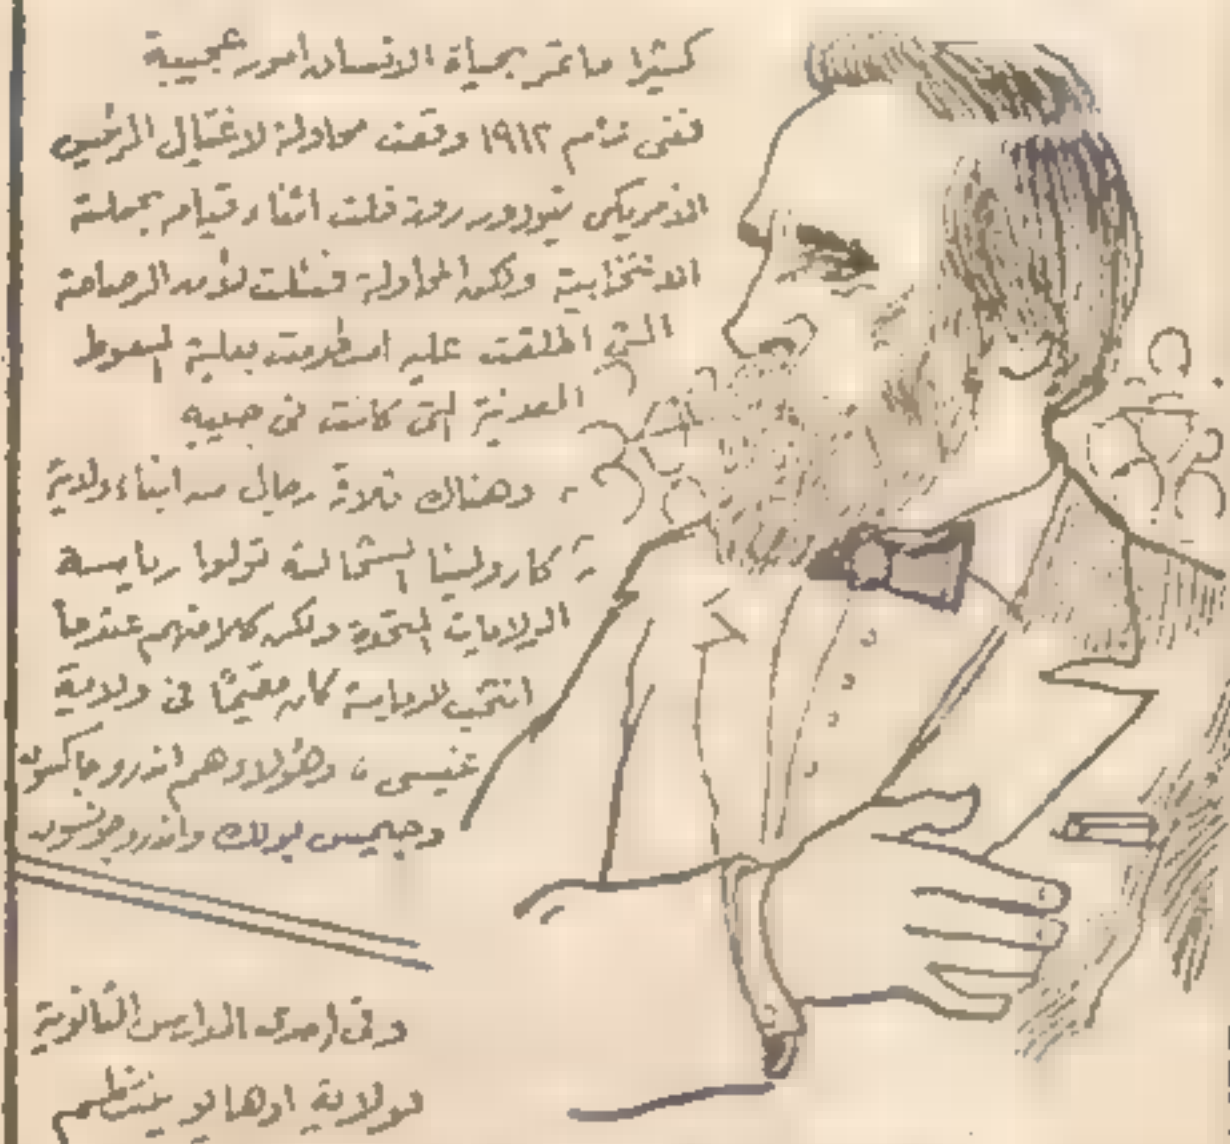 كثيرا ما تمر بحياة الانسان امور عجيبة
ففى عام ١٩١٢ وقعت محاولة لاغتيال الرئيس
الامريكى تيودور روزفلت اثناء قيامه بحملته
الانتخابية ولكن المحاولة فشلت لأن الرصاصة
التى اطلقت عليه اصطدمت بعلبة السعوط
المعدنية التى كانت فى جيبه
وهناك ثلاثة رجال من ابناء ولاية
كارولينا الشمالية تولوا رياسة
الولايات المتحدة ولكن كلا منهم عندما
انتخب للرياسة كان مقيمًا فى ولاية
تنيسى ، وهؤلاء هم اندرو جاكسون
وجيمس بولك واندرو جونسون
وفى احدى المدارس الثانوية
بولاية اوهايو ينتظم